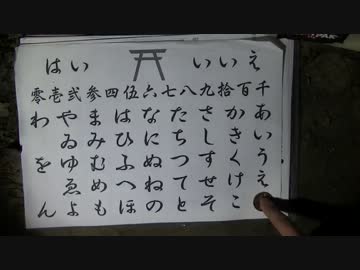 はい
いいえ
零壱弐参四伍六七八九拾百千
あいうえ
かきくけこ
さしすせそ
たちつてと
なにぬねの
はひふへほ
まみむめも
やゐゆゑよ
わをん